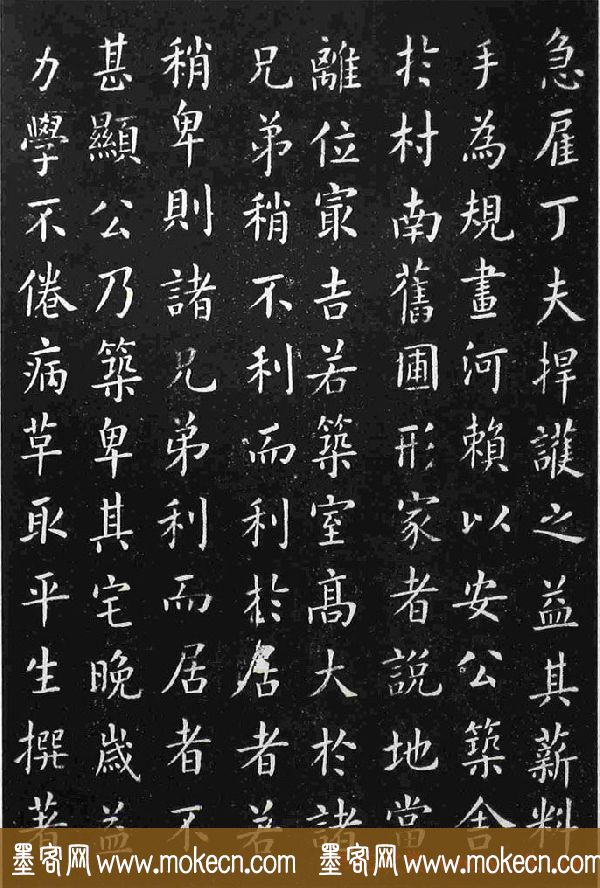 急雇丁夫捍護之益其薪料
手為規畫河賴以安公築舍
於村南舊圃形家者說地當
離位㝡吉若築室高大於諸
兄弟稍不利而利於居者若
稍卑則諸兄弟利而居者不
甚顯公乃築卑其宅晚歲益
力學不倦病草取平生撰著
墨客网 www.mokecn.com 墨客网 www.mokecn.com